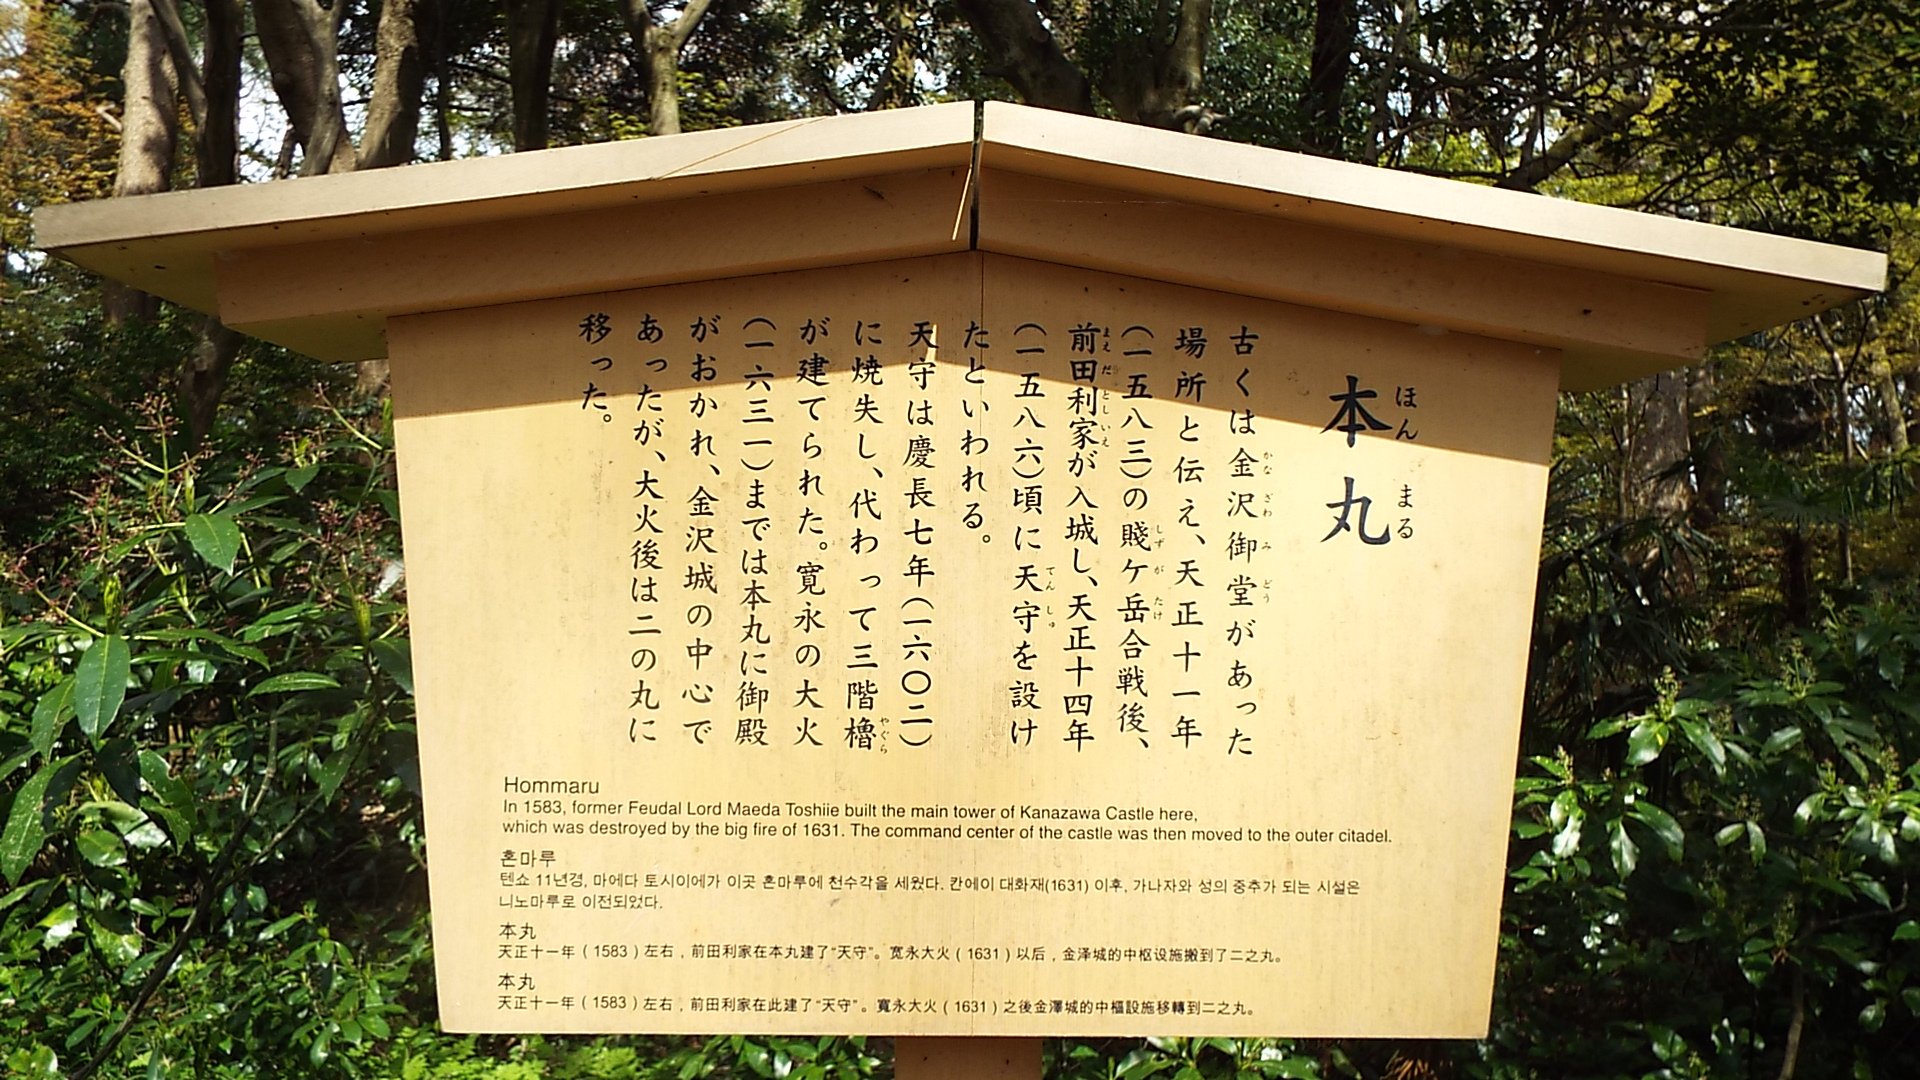 本丸
ほん まる
古くは金沢御堂があった
かな ざわ み どう
場所と伝え、天正十一年
(一五八三)の賤ケ岳合戦後、
しず が たけ
前田利家が入城し、天正十四年
まえ だ としいえ
(一五八六)頃に天守を設け
てん しゅ
たといわれる。
天守は慶長七年(一六〇二)
に焼失し、代わって三階櫓
やぐら
が建てられた。寛永の大火
(一六三一)までは本丸に御殿
がおかれ、金沢城の中心で
あったが、大火後は二の丸に
移った。
Hommaru
In 1583, former Feudal Lord Maeda Toshiie built the main tower of Kanazawa Castle here,
which was destroyed by the big fire of 1631. The command center of the castle was then moved to the outer citadel.
혼마루
텐쇼 11년경, 마에다 토시이에가 이곳 혼마루에 천수각을 세웠다. 칸에이 대화재(1631) 이후, 가나자와 성의 중추가 되는 시설은
니노마루로 이전되었다.
本丸
天正十一年(1583)左右，前田利家在本丸建了“天守”。宽永大火(1631)以后，金泽城的中枢设施搬到了二之丸。
本丸
天正十一年(1583)左右，前田利家在此建了“天守”。寬永大火(1631)之後金澤城的中樞設施移轉到二之丸。